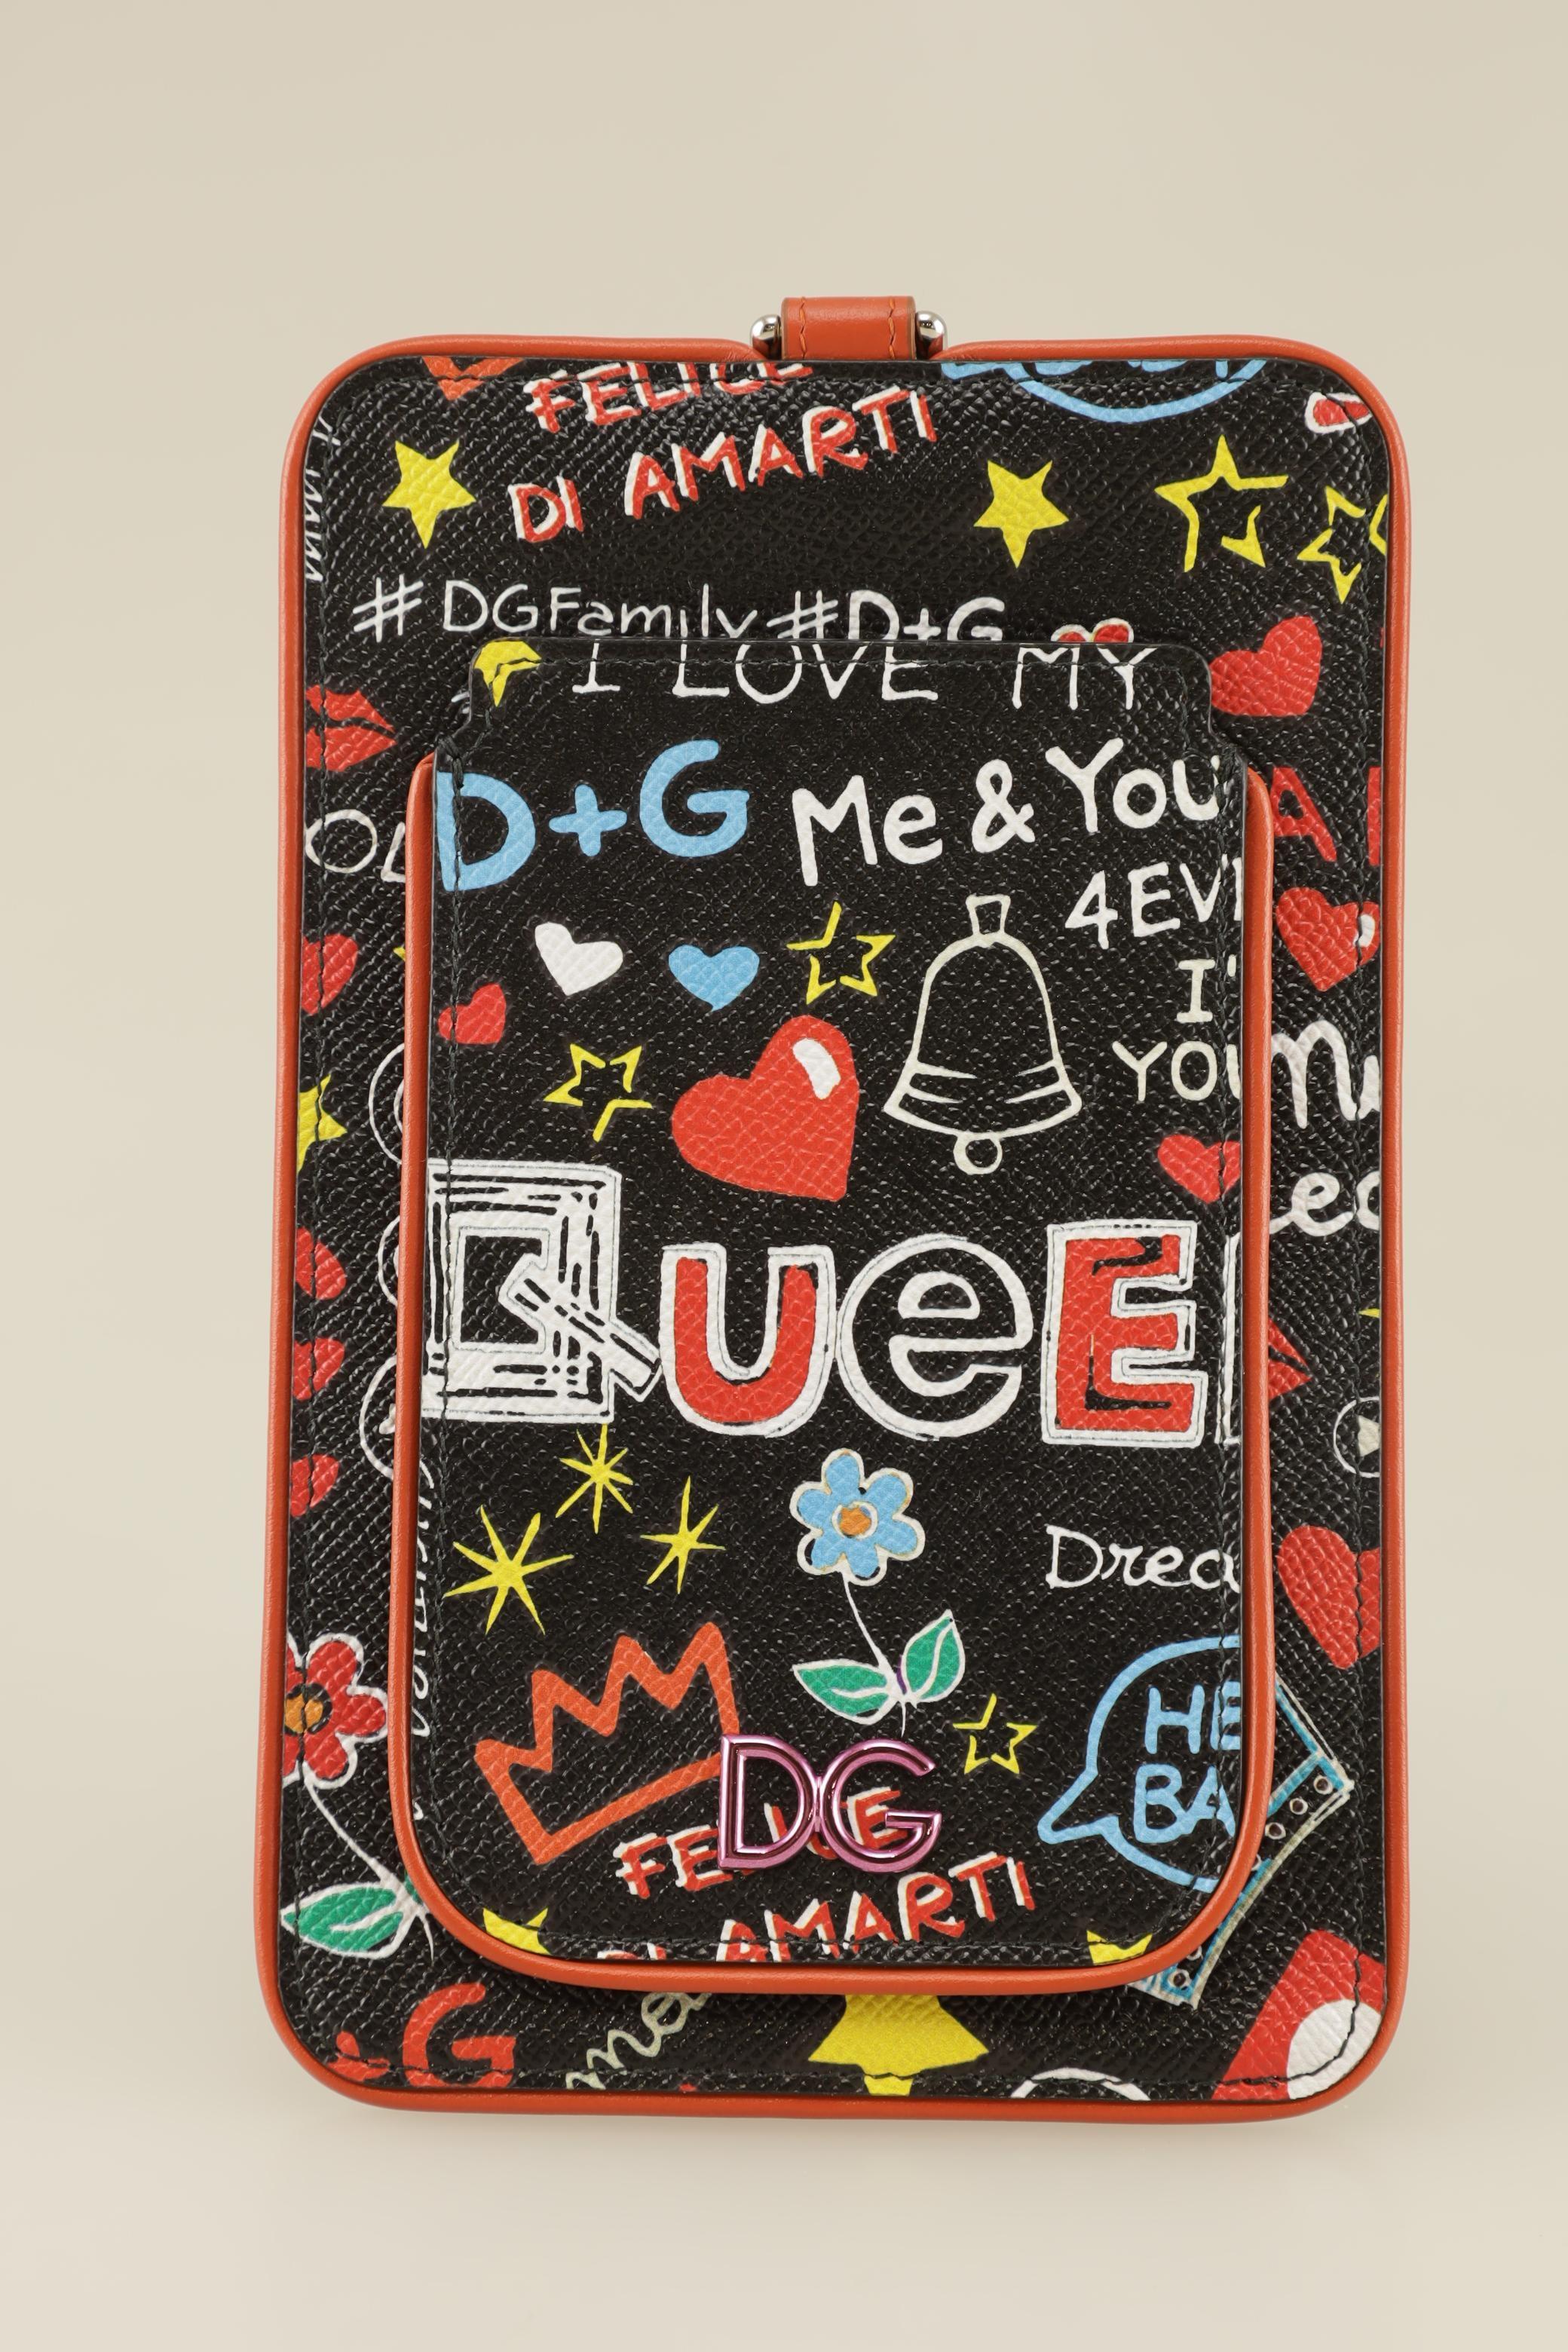 FELICE
DI AMARTI
# DGFamily #D+G
I LOVE MY
D+G Me & You
4EV
I'
YOU
QueE
Drea
HE
BA
DG
FELICE
DI AMARTI
+G